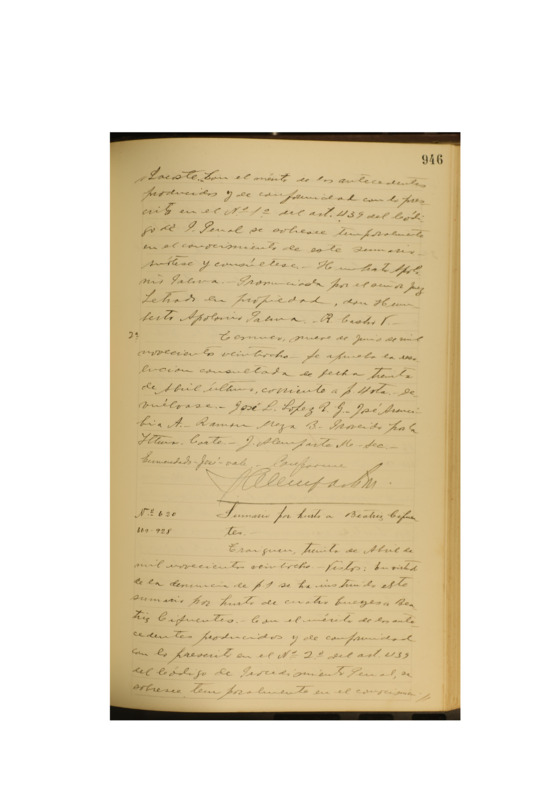 946
Con el mérito de los antecedentes
producidos y de conformidad con lo pres
crito en el Nº 1º del art. 439 del Códi
go de P. Penal se sobresee temporalmente
en el conocimiento de este sumario.
y consúltese.- Humberto Apoli
nis Pronunciada por el señor Juez
Letrado en propiedad, don Hum
berto Apolonio R. Castro V.-
2ª Temuco, nueve de Junio de mil
novecientos veintiocho. Se aprueba la reso
lución consultada de fecha treinta
de Abril último, corriente a f. Vota. De
vuélvase.- José L. Lopez A. G.- José
A.- Ramon Meza B. Proveido por la
Iltma. Corte.- J. Alemparte M.- Sec.-
Enmendado- José- vale.- Conforme
Sumario por hurto a Beatriz Cifuen
tes.-
Traiguen, treinta de Abril de
mil novecientos veintiocho.- Vistos: En virtud
de la denuncia de f 1 se ha instruido este
sumario por hurto de cuatro bueyes a Bea
triz Cifuentes.- Con el mérito de los ante
cedentes producidos y de conformidad
con lo prescrito en el Nº 2º del art 439
del Código de Procedimiento Penal, se
sobresee temporalmente en el conocimi